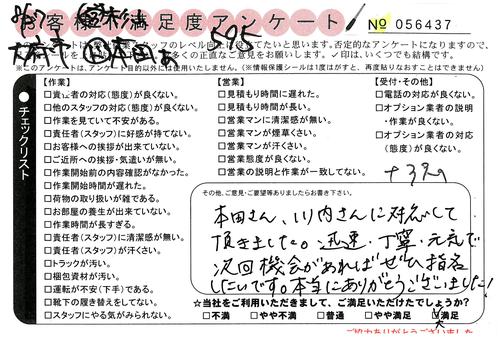 お客様満足度アンケート
No 056437
595
※このアンケートは、アンケート目的以外には使用いたしません。(※情報保護シールは1度はがすと、再度貼りなおすことはできません)
チェックリスト
【作業】
□責任者の対応(態度)が良くない。
□他のスタッフの対応(態度)が良くない。
□作業を見ていて不安がある。
□責任者(スタッフ)に好感が持てない。
□お客様への挨拶が出来ていない。
□ご近所への挨拶・気遣いが無い。
□作業開始前の内容確認がなかった。
□作業開始時間が遅れた。
□荷物の取り扱いが雑である。
□お部屋の養生が出来ていない。
□作業時間が長すぎる。
□責任者(スタッフ)に清潔感が無い。
□責任者(スタッフ)が汗くさい。
□トラックが汚い。
□梱包資材が汚い。
□運転が不安(下手)である。
□靴下の履き替えをしてない。
□スタッフにやる気がみられない。
【営業】
□見積もり時間に遅れた。
□見積もり時間が長い。
□営業マンに清潔感が無い。
□営業マンが煙草くさい。
□営業マンが汗くさい。
□営業態度が良くない。
□営業の説明と作業が一致してない。
【受付・その他】
□電話の対応が良くない。
□オプション業者の説明
・作業が良くない。
□オプション業者の対応
(態度)が良くない。
その他、ご意見・ご要望等ありましたらお書き下さい。
本田さん、川内さんに対応して
頂きました。迅速・丁寧・元気で
次回機会があればぜひ指名
したいです。本当にありがとうございました!
☆当社をご利用いただきまして、ご満足いただけたでしょうか?
□不満 □やや不満 □普通 □やや満足 ☑満足
大
ご協力ありがとうございました